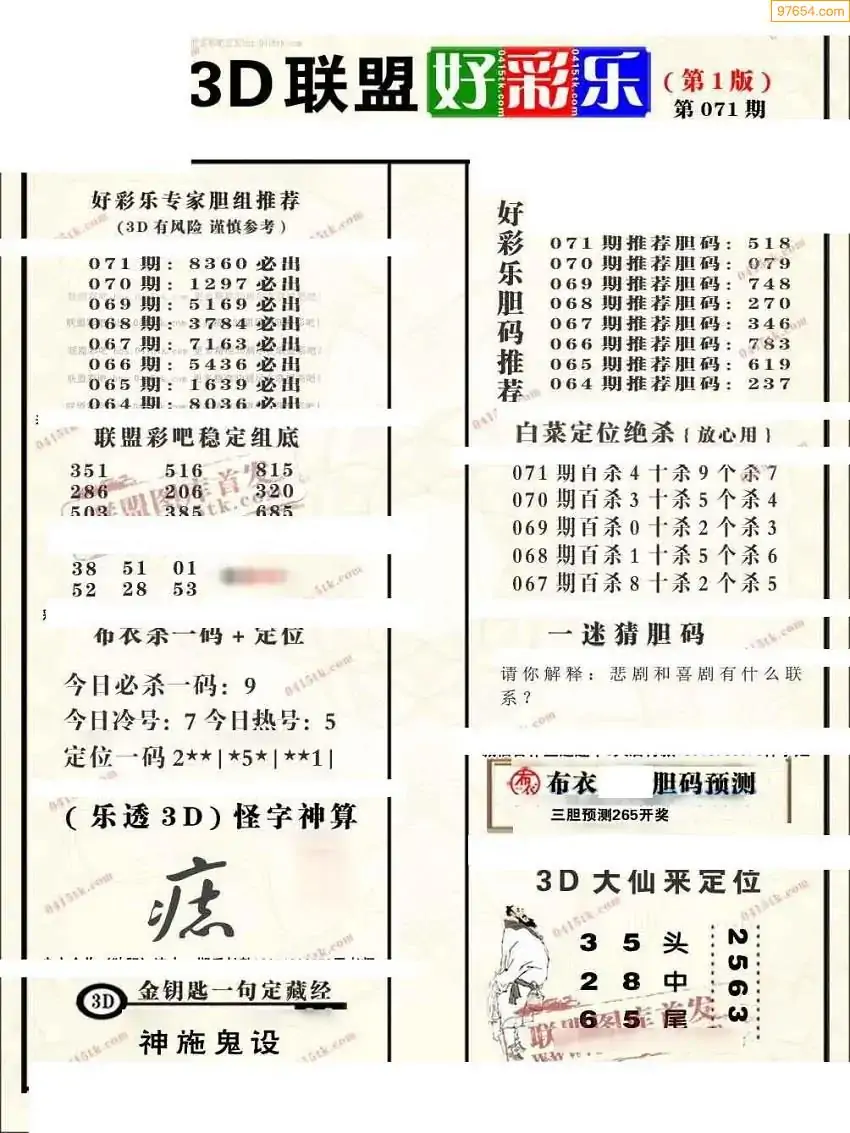 97654.com
3D联盟好彩乐
(第1版)
第071期
好彩乐专家胆组推荐
(3D有风险 谨慎参考)
071期: 8360必出
070期: 1297必出
069期: 5169必出
068期: 3784必出
067期: 7163必出
066期: 5436必出
065期: 1639必出
064期: 8036必出
联盟彩吧稳定组底
351 516 815
286 206 320
503 385 685
38 51 01
52 28 53
布衣杀一码+定位
今日必杀一码: 9
今日冷号: 7 今日热号: 5
定位一码 2**|*5*|**1|
(乐透3D)怪字神算
痣
3D 金钥匙一句定藏经
神施鬼设
好彩乐胆码推荐
071期推荐胆码: 518
070期推荐胆码: 079
069期推荐胆码: 748
068期推荐胆码: 270
067期推荐胆码: 346
066期推荐胆码: 783
065期推荐胆码: 619
064期推荐胆码: 237
白菜定位绝杀{放心用}
071期百杀4十杀9个杀7
070期百杀3十杀5个杀4
069期百杀0十杀2个杀3
068期百杀1十杀5个杀6
067期百杀8十杀2个杀5
一迷猜胆码
请你解释: 悲剧和喜剧有什么联
系?
布衣 胆码预测
三胆预测265开奖
3D大仙来定位
3 5 头
2 8 中
6 5 尾
2563
联盟图库首发
0415tk.com